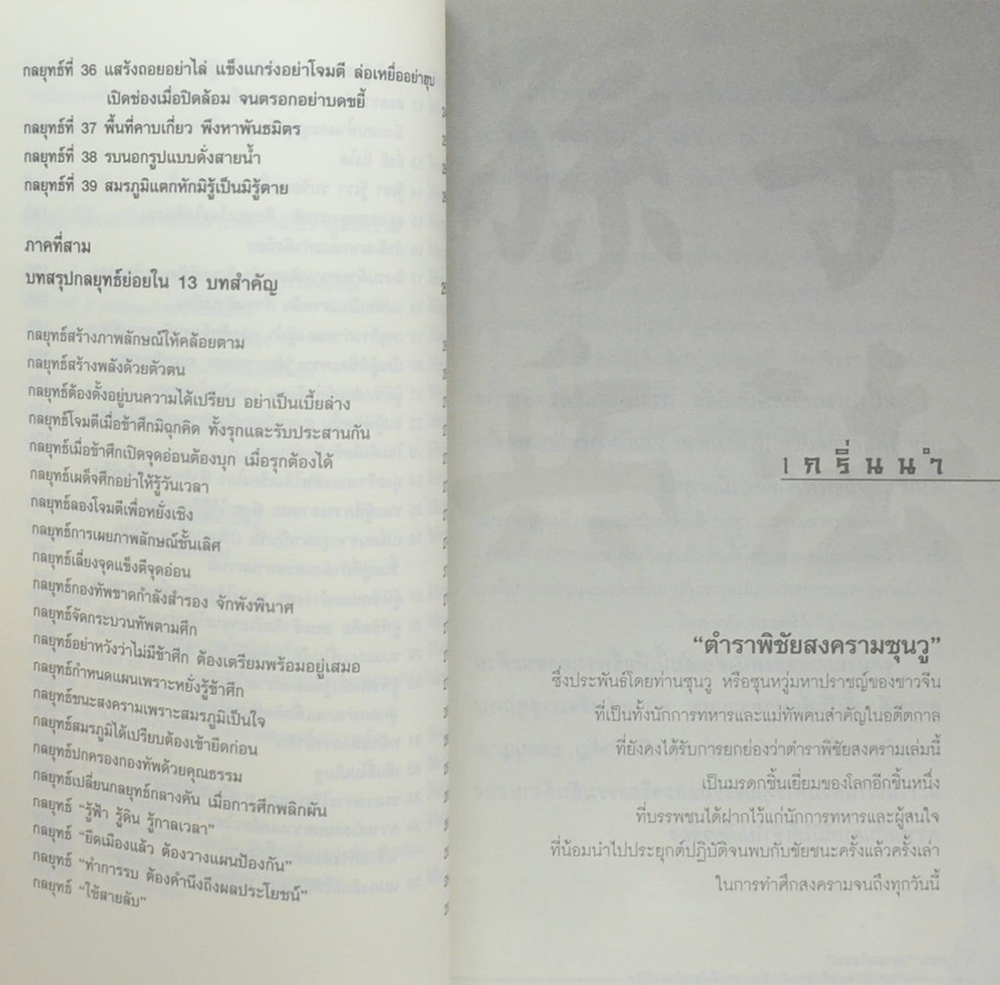 กลยุทธ์ที่ 36 แสร้งถอยอย่าไล่ แข็งแกร่งอย่าโจมตี ล่อเหยื่ออย่าฮุบ
เปิดช่องเมื่อปิดล้อม จนตรอกอย่าบดขยี้
กลยุทธ์ที่ 37 พื้นที่คาบเกี่ยว พึงหาพันธมิตร
กลยุทธ์ที่ 38 รบนอกรูปแบบดั่งสายน้ำ
กลยุทธ์ที่ 39 สมรภูมิแตกหักมิรู้เป็นมิรู้ตาย
ภาคที่สาม
บทสรุปกลยุทธ์ย่อยใน 13 บทสำคัญ
กลยุทธ์สร้างภาพลักษณ์ให้คล้อยตาม
กลยุทธ์สร้างพลังด้วยตัวตน
กลยุทธ์ต้องตั้งอยู่บนความได้เปรียบ อย่าเป็นเบี้ยล่าง
กลยุทธ์โจมตีเมื่อข้าศึกมิฉุกคิด ทั้งรุกและรับประสานกัน
กลยุทธ์เมื่อข้าศึกเปิดจุดอ่อนต้องบุก เมื่อรุกต้องได้
กลยุทธ์เผด็จศึกอย่าให้รู้วันเวลา
กลยุทธ์ลองโจมตีเพื่อหยั่งเชิง
กลยุทธ์การเผยภาพลักษณ์ชั้นเลิศ
กลยุทธ์เลี่ยงจุดแข็งตีจุดอ่อน
กลยุทธ์กองทัพขาดกำลังสำรอง จักพังพินาศ
กลยุทธ์จัดกระบวนทัพตามศึก
กลยุทธ์อย่าหวังว่าไม่มีข้าศึก ต้องเตรียมพร้อมอยู่เสมอ
กลยุทธ์กำหนดแผนเพราะหยั่งรู้ข้าศึก
กลยุทธ์ชนะสงครามเพราะสมรภูมิเป็นใจ
กลยุทธ์สมรภูมิได้เปรียบต้องเข้ายึดก่อน
กลยุทธ์ปกครองกองทัพด้วยคุณธรรม
กลยุทธ์เปลี่ยนกลยุทธ์กลางคัน เมื่อการศึกพลิกผัน
กลยุทธ์ “รู้ฟ้า รู้ดิน รู้กาลเวลา”
กลยุทธ์ “ยึดเมืองแล้ว ต้องวางแผนป้องกัน”
กลยุทธ์ “ทำการรบ ต้องคำนึงถึงผลประโยชน์”
กลยุทธ์ “ใช้สายลับ”
เกริ่นนำ
“ตำราพิชัยสงครามซุนวู”
ซึ่งประพันธ์โดยท่านซุนวู หรือซุนหวู่มหาปราชญ์ของชาวจีน
ที่เป็นทั้งนักการทหารและแม่ทัพคนสำคัญในอดีตกาล
ที่ยังคงได้รับการยกย่องว่าตำราพิชัยสงครามเล่มนี้
เป็นมรดกชิ้นเยี่ยมของโลกอีกชิ้นหนึ่ง
ที่บรรพชนได้ฝากไว้แก่นักการทหารและผู้สนใจ
ที่น้อมนำไปประยุกต์ปฏิบัติจนพบกับชัยชนะครั้งแล้วครั้งเล่า
ในการทำศึกสงครามจนถึงทุกวันนี้